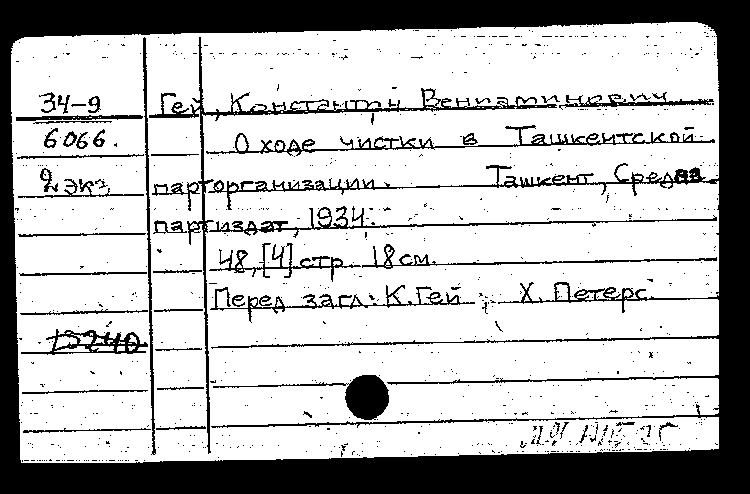 34-9 Гей, Константин Вениаминович
6066. О ходе чистки в Ташкентской
2 экз. парторганизации. Ташкент, Средаз-
партиздат, 1934.
48,[4] стр. 18 см.
Перед загл.: К. Гей, Х. Петерс.
15240